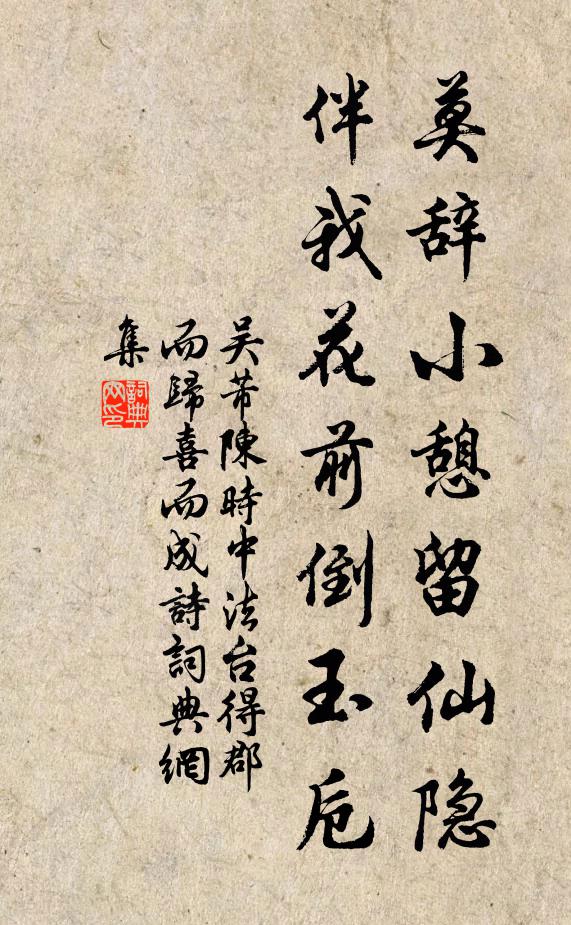 莫辞小憩留仙隐
伴我花前倒玉卮
吴芾陳時中法台得郡
而歸喜而成詩詞典網
集
詞典网印